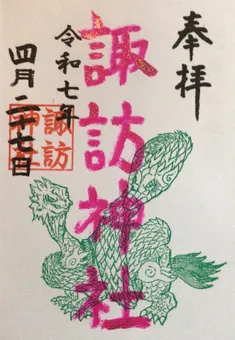 奉拝
諏訪神社
令和七年
四月二十七日
諏訪
神社